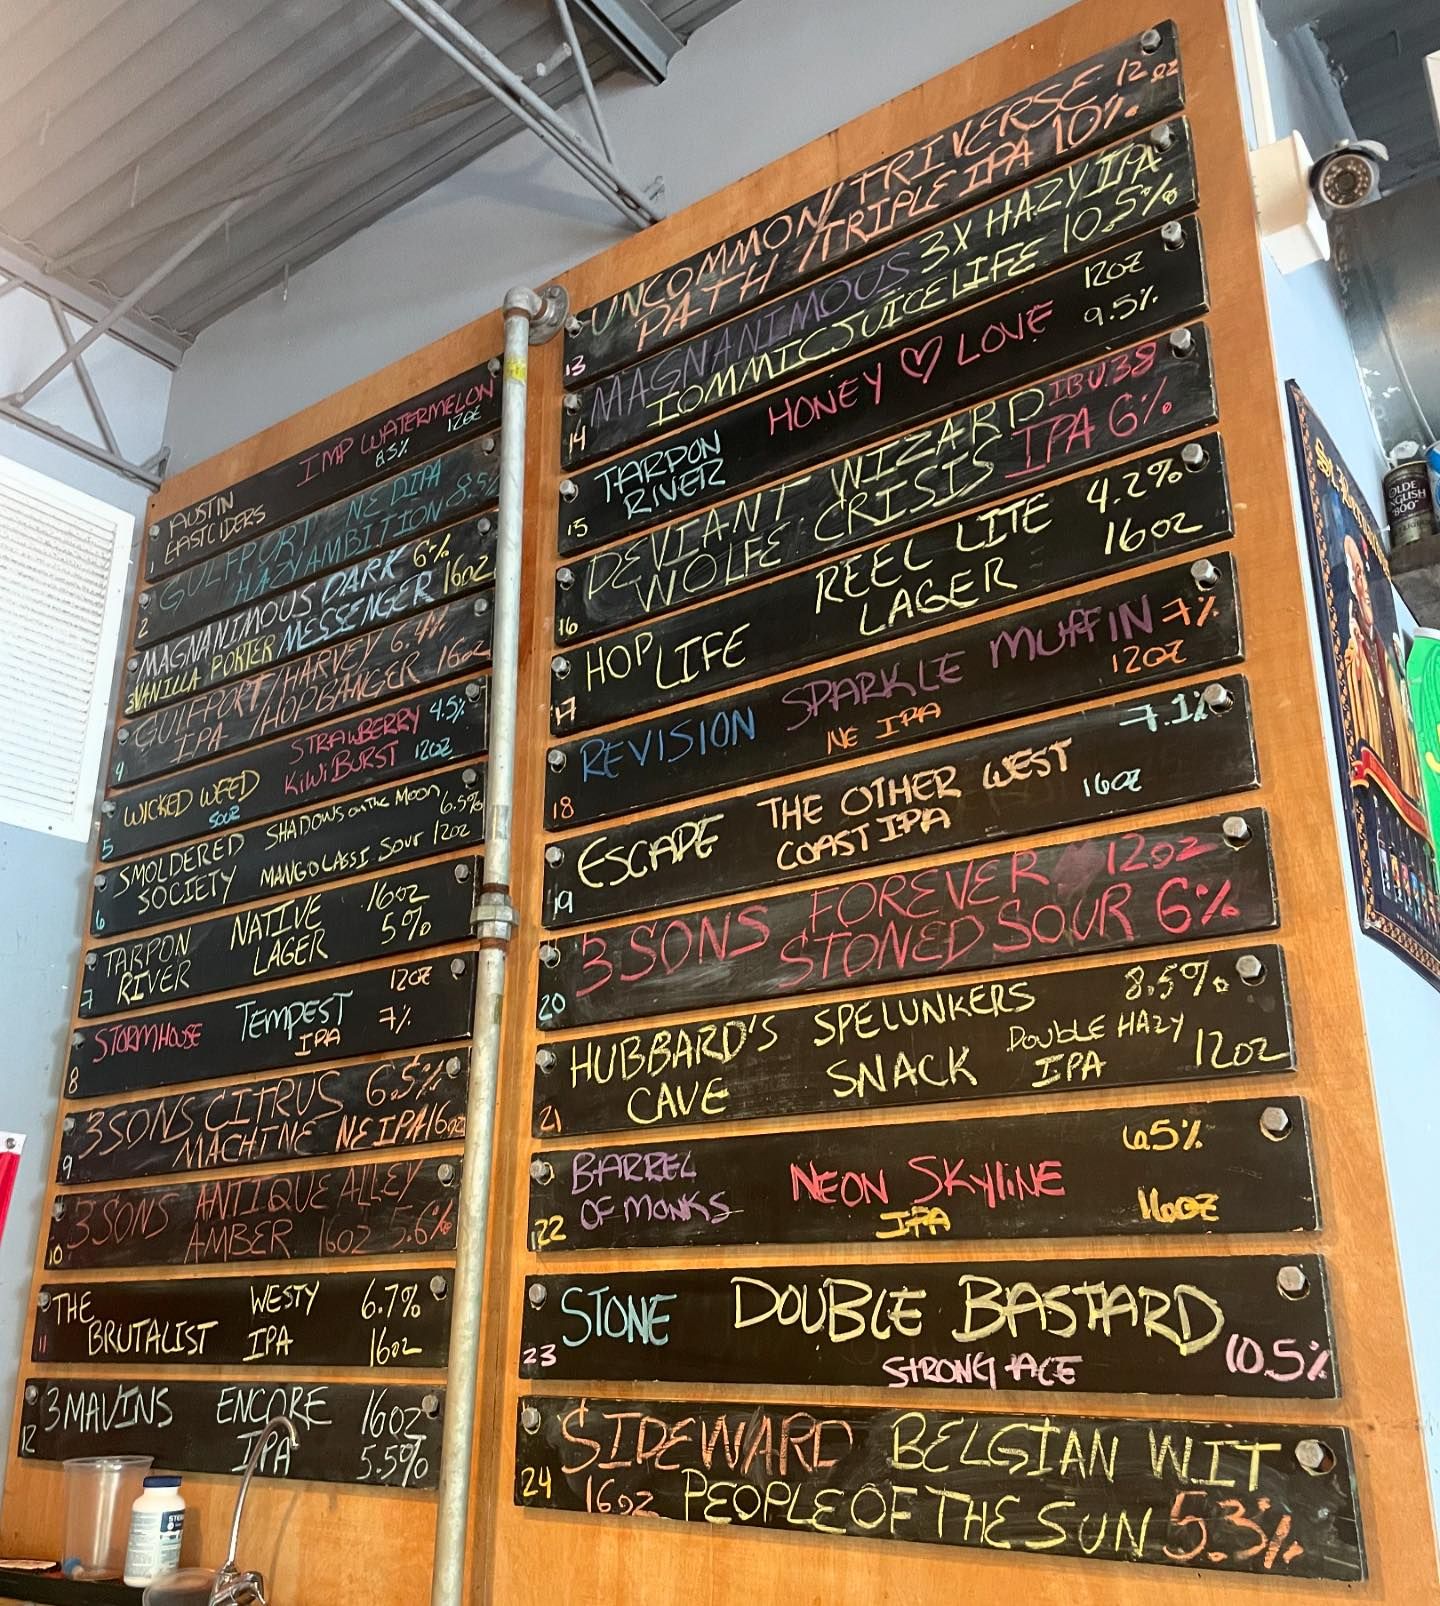 IMP WATERMELON
AUSTIN 8.5% 12OZ
EASTCIDERS
1
GULFPORT NE DIPA
HAZY AMBITION 8.5%
2
MAGNANIMOUS DARK 6%
VANILLA PORTER/MESSENGER 16OZ
3
GULFPORT/HARVEY 6.4%
IPA /HOPBANGER 16OZ
4
WICKED WEED STRAWBERRY 4.5%
SOUR KIWI BURST 12OZ
5
SMOLDERED SHADOWS ON THE MOON 6.5%
SOCIETY MANGO LASSI SOUR 12OZ
6
TARPON NATIVE 16OZ
RIVER LAGER 5%
7
STORMHOUSE TEMPEST 12OZ
IPA 7%
8
3 SONS CITRUS 6.5%
MACHINE NEIPA 16OZ
9
3 SONS ANTIQUE ALLEY
AMBER 16OZ 5.6%
10
THE WESTY 6.7%
BRUTALIST IPA 16OZ
11
3 MAVINS ENCORE 16OZ
IPA 5.5%
12
UNCOMMON/TRIVERSE 12OZ
PATH /TRIPLE IPA 10%
13
MAGNANIMOUS 3X HAZY IPA
IOMMIC JUICE LIFE 10.5%
14
TARPON HONEY ♡ LOVE 12OZ
RIVER 9.5%
15
DEVIANT WIZARD IBU 38
WOLFE CRISIS IPA 6%
16
HOP LIFE REEL LITE 4.2%
LAGER 16OZ
17
REVISION SPARKLE MUFFIN 7%
NE IPA 12OZ
18
ESCAPE THE OTHER WEST 7.1%
COAST IPA 16OZ
19
3 SONS FOREVER 12OZ
STONED SOUR 6%
20
HUBBARD'S SPELUNKERS 8.5%
CAVE SNACK DOUBLE HAZY IPA 12OZ
21
BARREL NEON SKYLINE 6.5%
OF MONKS IPA 16OZ
22
STONE DOUBLE BASTARD
STRONG ACE 10.5%
23
SIDEWARD BELGIAN WIT
16OZ PEOPLE OF THE SUN 5.3%
24
OLDE
ENGLISH
"800"